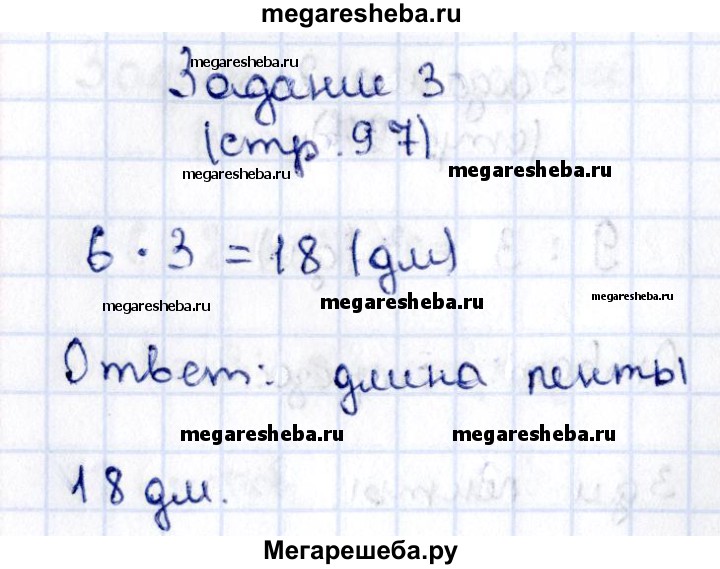 megaresheba.ru
megaresheba.ru
Задание 3
(стр. 97)
megaresheba.ru
megaresheba.ru
6 · 3 = 18 (дм)
megaresheba.ru
megaresheba.ru
megaresheba.ru
Ответ: длина ленты
megaresheba.ru
megaresheba.ru
18 дм.
Мегарешеба.ру